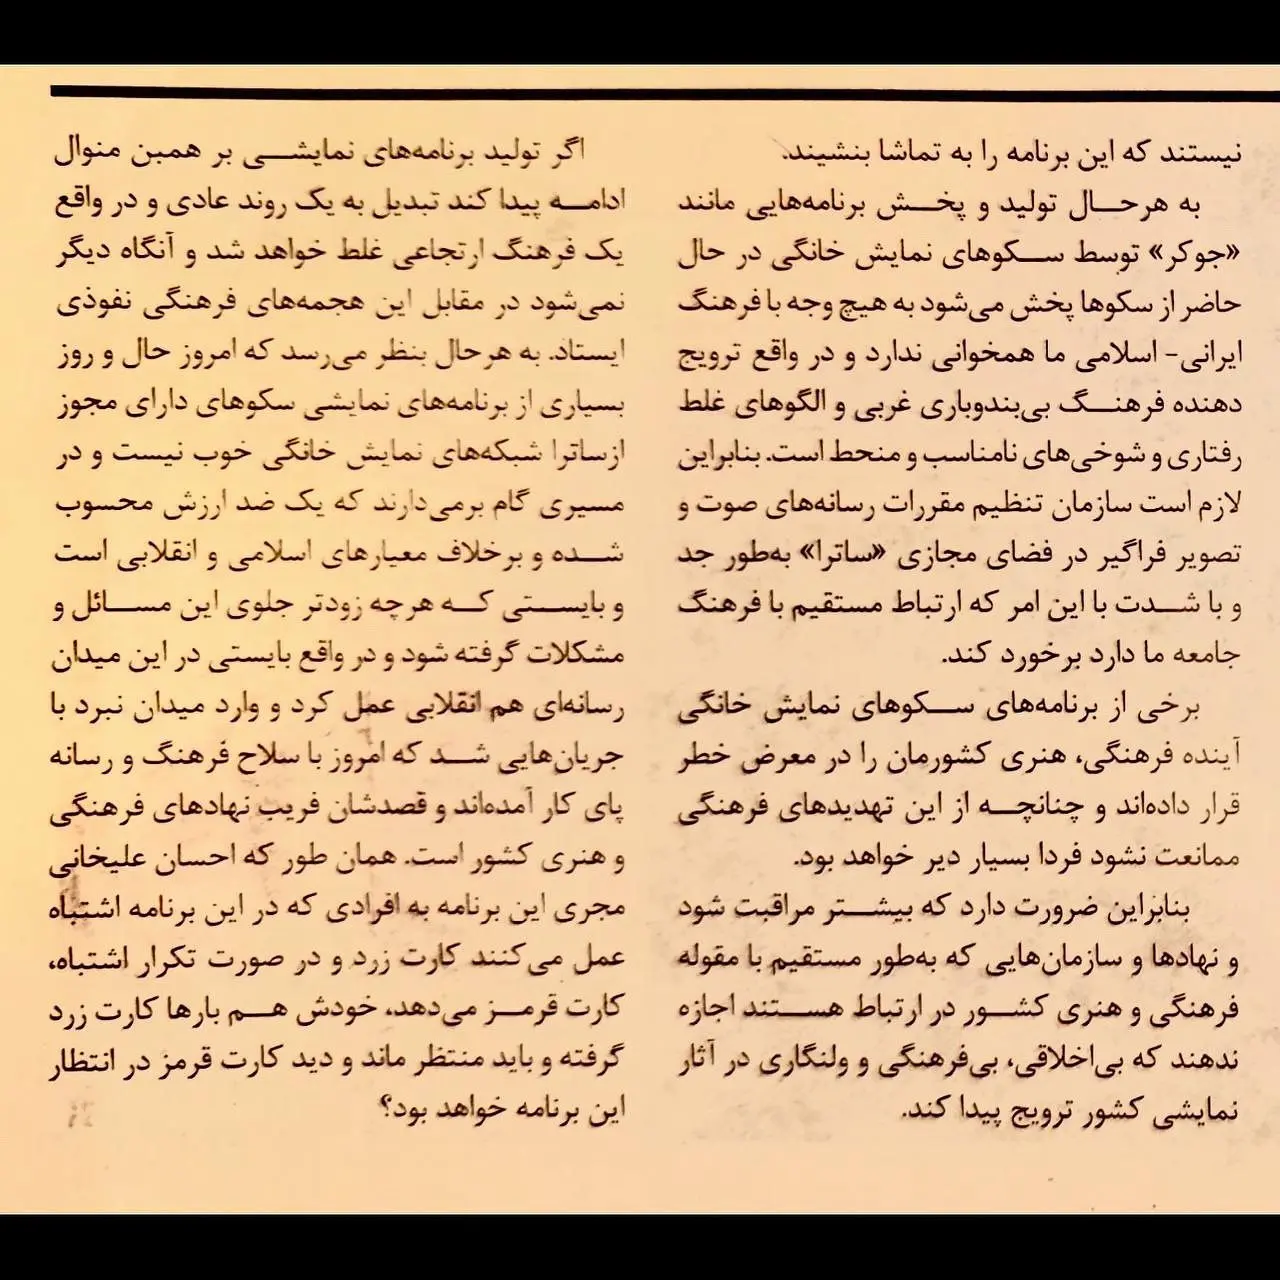 نیستند که این برنامه را به تماشا بنشیند.
به هرحال تولید و پخش برنامه‌هایی مانند
«جوکر» توسط سکوهای نمایش خانگی در حال
حاضر از سکوها پخش می‌شود به هیچ وجه با فرهنگ
ایرانی- اسلامی ما همخوانی ندارد و در واقع ترویج
دهنده فرهنگ بی‌بندوباری غربی و الگوهای غلط
رفتاری و شوخی‌های نامناسب و منحط است. بنابراین
لازم است سازمان تنظیم مقررات رسانه‌های صوت و
تصویر فراگیر در فضای مجازی «ساترا» به‌طور جد
و با شدت با این امر که ارتباط مستقیم با فرهنگ
جامعه ما دارد برخورد کند.
برخی از برنامه‌های سکوهای نمایش خانگی
آینده فرهنگی، هنری کشورمان را در معرض خطر
قرار داده‌اند و چنانچه از این تهدیدهای فرهنگی
ممانعت نشود فردا بسیار دیر خواهد بود.
بنابراین ضرورت دارد که بیشتر مراقبت شود
و نهادها و سازمان‌هایی که به‌طور مستقیم با مقوله
فرهنگی و هنری کشور در ارتباط هستند اجازه
ندهند که بی‌اخلاقی، بی‌فرهنگی و ولنگاری در آثار
نمایشی کشور ترویج پیدا کند.
اگر تولید برنامه‌های نمایشی بر همین منوال
ادامه پیدا کند تبدیل به یک روند عادی و در واقع
یک فرهنگ ارتجاعی غلط خواهد شد و آنگاه دیگر
نمی‌شود در مقابل این هجمه‌های فرهنگی نفوذی
ایستاد. به هرحال بنظر می‌رسد که امروز حال و روز
بسیاری از برنامه‌های نمایشی سکوهای دارای مجوز
ازساترا شبکه‌های نمایش خانگی خوب نیست و در
مسیری گام برمی‌دارند که یک ضد ارزش محسوب
شده و برخلاف معیارهای اسلامی و انقلابی است
و بایستی که هرچه زودتر جلوی این مسائل و
مشکلات گرفته شود و در واقع بایستی در این میدان
رسانه‌ای هم انقلابی عمل کرد و وارد میدان نبرد با
جریان‌هایی شد که امروز با سلاح فرهنگ و رسانه
پای کار آمده‌اند و قصدشان فریب نهادهای فرهنگی
و هنری کشور است. همان طور که احسان علیخانی
مجری این برنامه به افرادی که در این برنامه اشتباه
عمل می‌کنند کارت زرد و در صورت تکرار اشتباه،
کارت قرمز می‌دهد، خودش هم بارها کارت زرد
گرفته و باید منتظر ماند و دید کارت قرمز در انتظار
این برنامه خواهد بود؟